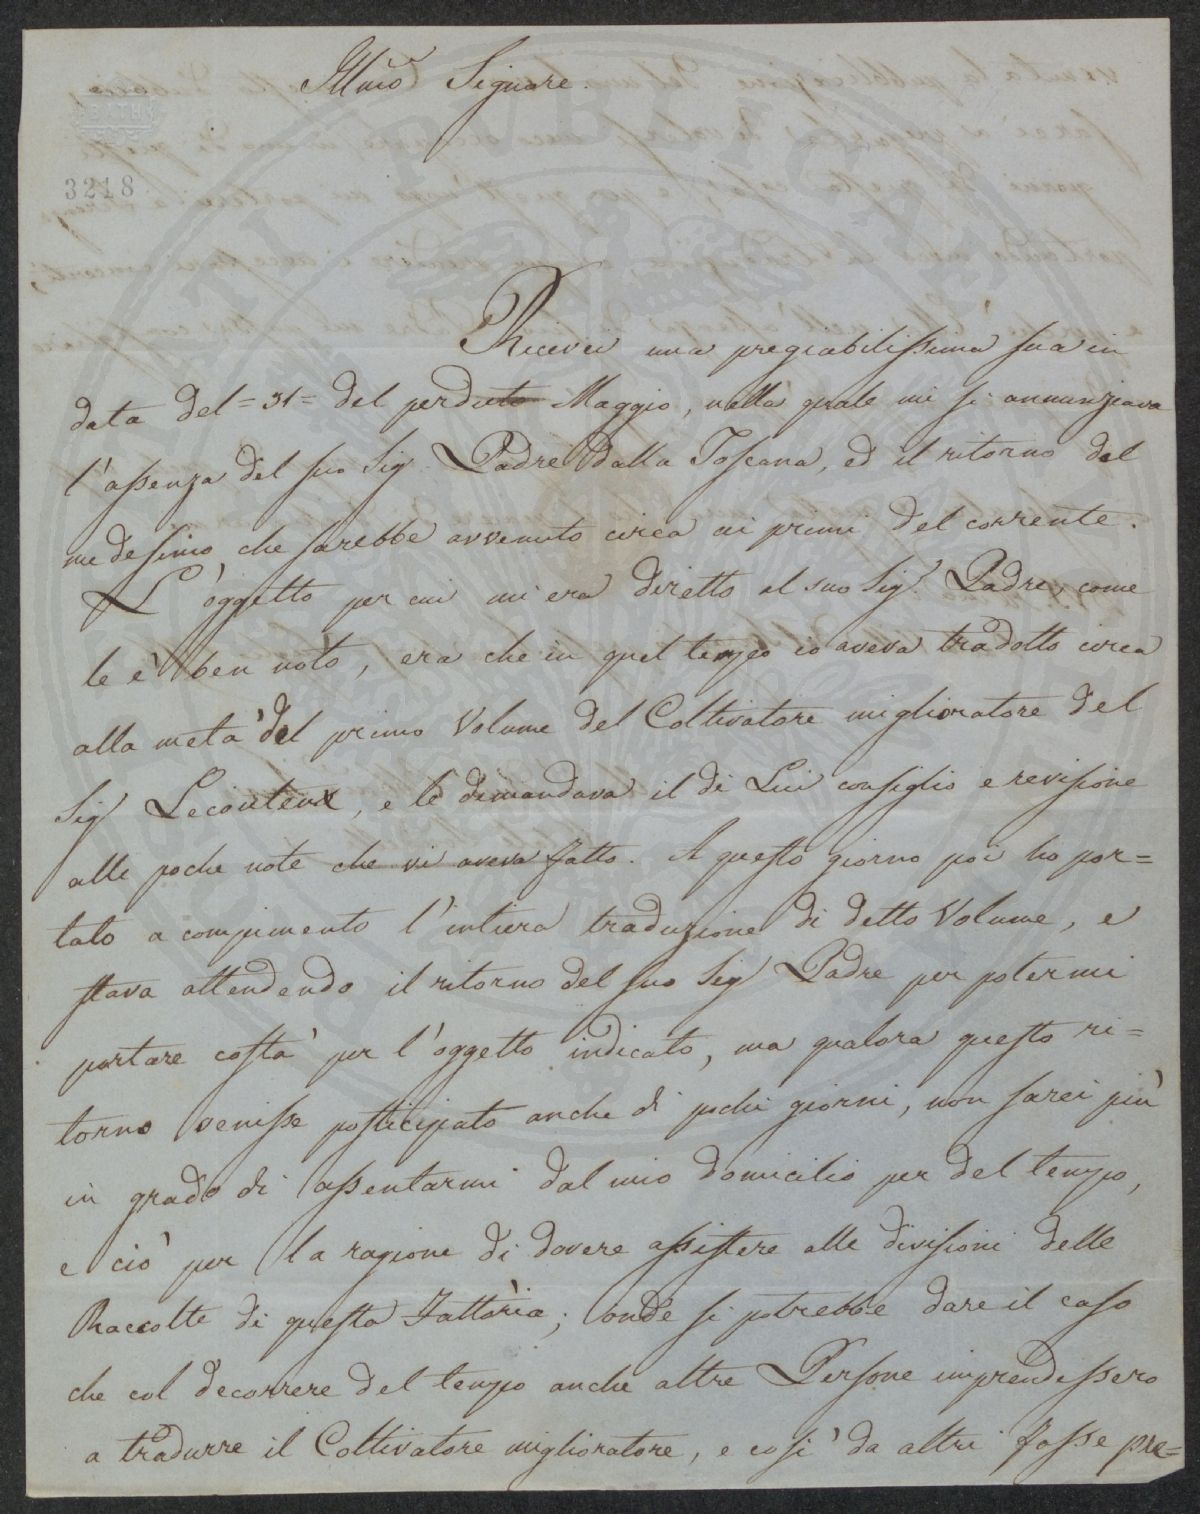 Illmo Signore.
3218
Ricevei una pregiabilissima sua in
data del = 31 = del perduto Maggio, nella quale mi si annunziava
l'assenza del suo Sig. Padre dalla Toscana, ed il ritorno del
medesimo, che sarebbe avvenuto circa ai primi del corrente.
L'oggetto per cui mi era diretto al suo Sig. Padre, come
le è ben noto, era che in quel tempo io aveva tradotto circa
alla metà del primo Volume del Coltivatore miglioratore del
Sig. Lecouteux, e le dimandava il di Lui consiglio e revisione
alle poche note che vi aveva fatto. A questo giorno poi ho por=
tato a compimento l'intiera traduzione di detto Volume, e
stava attendendo il ritorno del suo Sig. Padre per potermi
portare costà per l'oggetto indicato, ma qualora questo ri=
torno venisse posticipato anche di pochi giorni, non sarei più
in grado di assentarmi dal mio domicilio per del tempo,
e ciò per la ragione di dovere assistere alle divisioni delle
Raccolte di questa Fattoria; onde si potrebbe dare il caso
che col decorrere del tempo anche altre Persone imprendessero
a tradurre il Coltivatore miglioratore, e così da altri fosse pre=